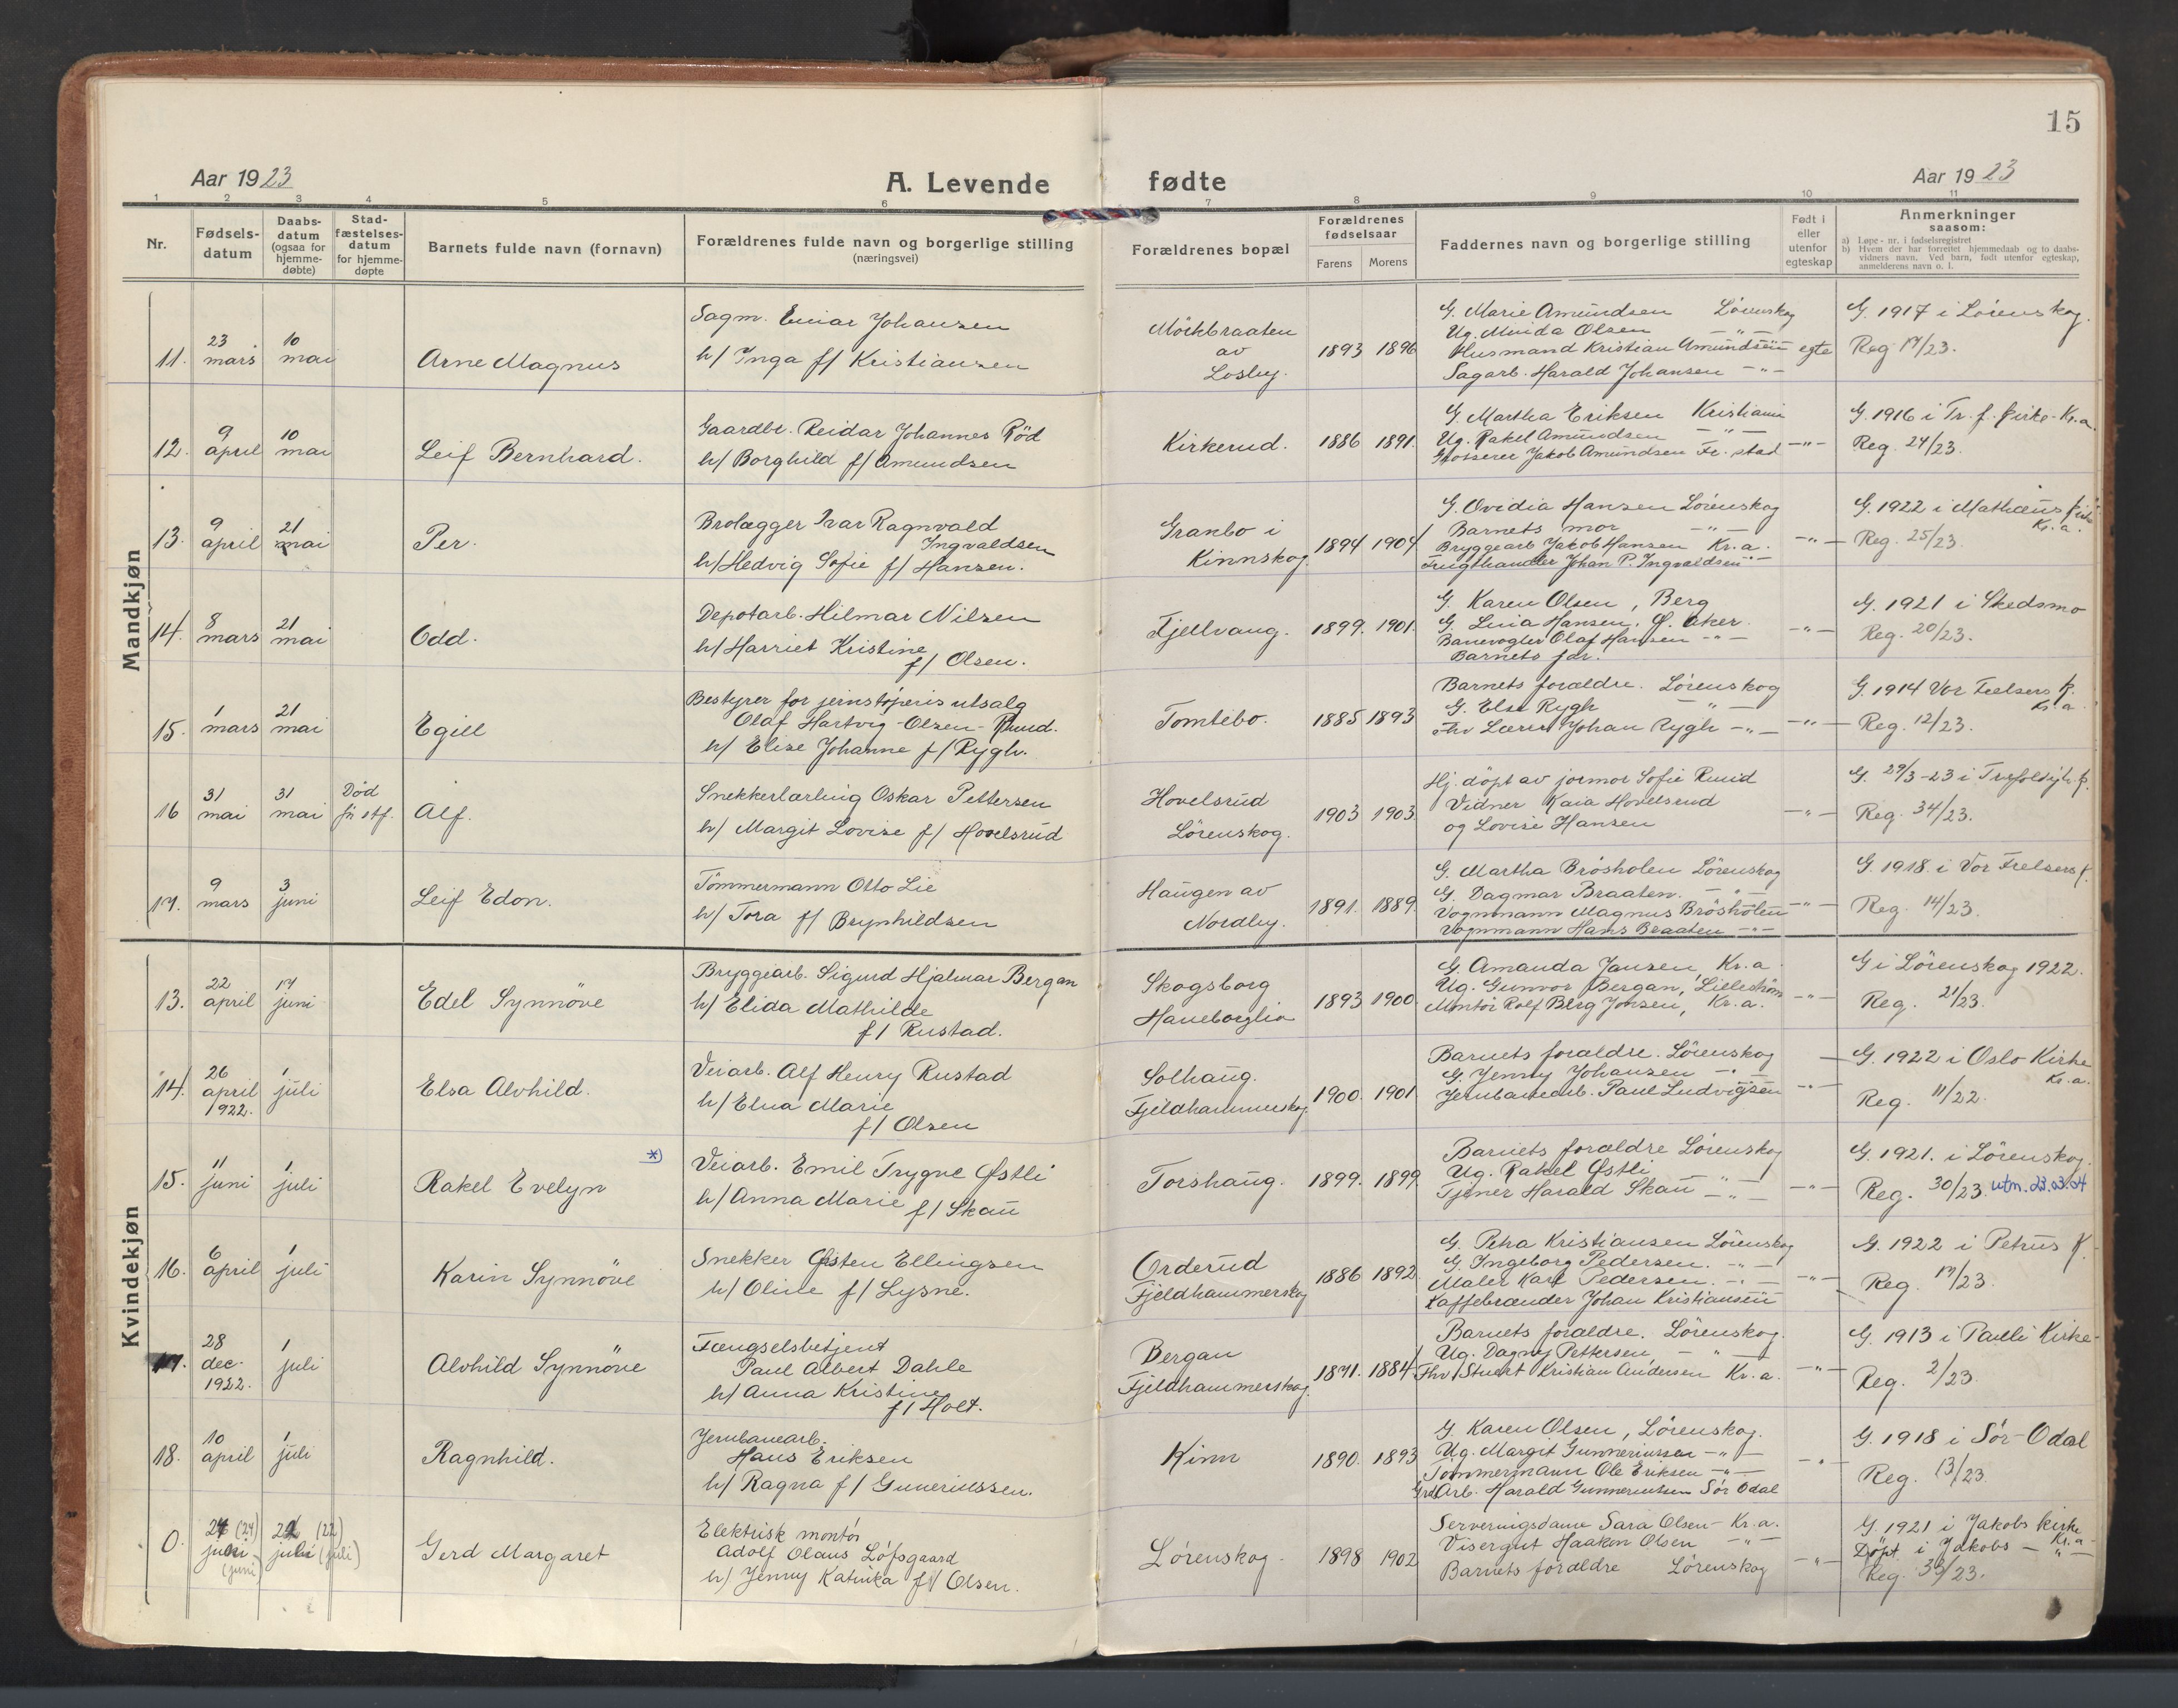 15
Aar 1923
A. Levende fødte
Aar 1923
1 2 3 4 5 6 7 8 9 10 11
Nr.
Fødsels-
datum
Daabs-
datum
(ogsaa for
hjemme-
døbte)
Stad-
fæstelses-
datum
for hjemme-
døpte
Barnets fulde navn (fornavn)
Forældrenes fulde navn og borgerlige stilling
(næringsvei)
Forældrenes bopæl
Forældrenes
fødselsaar
Farens Morens
Faddernes navn og borgerlige stilling
Født i
eller
utenfor
egteskap
Anmerkninger
saasom:
a) Løpe-nr. i fødselsregistret
b) Hvem der har forrettet hjemmedaab og to daabs-
vidners navn. Ved barn, født utenfor egteskap,
anmelderens navn o. l.
Mandkjøn
11.
23
mars
10
mai
Arne Magnus
Sagm. Einar Johansen
h/ Inga f/ Kristiansen
Mörkbraaten
av
Losby.
1893 1896
G. Marie Amundsen Lörenskog
Ug. Minda Olsen —"—
Husmand Kristian Amundsen
Sagarb. Harald Johansen —"—
egte
G. 1917 i Lörenskog.
Reg 17/23.
12.
9
april
10
mai
Leif Bernhard.
Gaardbr. Reidar Johannes Röd
h/ Borghild f/ Amundsen
Kirkerud.
1886 1891.
G. Martha Eriksen Kristiania
Ug. Rakel Amundsen —"—
Grosserer Jakob Amundsen Fr. stad
—"—
G. 1916 i Tr. f. kirke - Kr.a.
Reg. 24/23.
13.
9
april
21
mai
Per.
Brolægger Ivar Ragnvald
Ingvaldsen
h/ Hedvig Sofie f/ Hansen.
Granbo i
Kinnskog.
1894 1904
G. Ovidia Hansen Lörenskog
Barnets mor —"—
Bryggearb Jakob Hansen Kr.a.
Frugthandler Johan P. Ingvaldsen —"—
—"—
G. 1922 i Mathæus kirke
Kr.a.
Reg. 25/23.
14.
8
mars
21
mai
Odd.
Depotarb. Hilmar Nilsen
h/ Harriet Kristine
f/ Olsen.
Fjellvang.
1899. 1901.
G. Karen Olsen, Berg
G. Lina Hansen, Ø. Aker.
Banevogter Olaf Hansen —"—
Barnets far.
—"—
G. 1921 i Skedsmo
Reg. 20/23.
15.
1
mars
21
mai
Egill
Bestyrer for jernstöperis utsalg
Olaf Hartvig-Olsen-Ruud.
h/ Elise Johanne f/ Rygh.
Tomtebo.
1885 1893
Barnets forældre. Lörenskog
G. Else Rygh —"—
Fhv Lærer Johan Rygh —"—
—"—
G. 1914 Vor Frelsers K.
Kr.a.
Reg. 12/23.
16
31
mai
31
mai
Död
för stf.
Alf.
Snekkerlærling Oskar Pettersen
h/ Margit Lovise f/ Hovelsrud
Hovelsrud
Lörenskog.
1903 1903.
Hj. döpt av jormor Sofie Ruud
Vidner Kaia Hovelsrud
og Lovise Hansen
—"—
G. 29/3-23 i Trefoldigh. k.
Reg. 34/23.
17.
9
mars
3
juni
Leif Edon.
Tömmermann Otto Lie
h/ Tora f/ Brynhildsen
Haugen av
Nordby.
1891. 1889.
G. Martha Brösholen Lörenskog
G. Dagmar Braaten. —"—
Vognmann Magnus Brösholen
Vognmann Hans Braaten —"—
—"—
G. 1918. i Vor Frelsers k.
Reg. 14/23.
Kvindekjøn
13.
22
april
17
juni
Edel Synnöve
Bryggearb. Sigurd Hjalmar Bergan
h/ Elida Mathilde
f/ Rustad.
Skogsborg
Haneborglia
1893 1900
G. Amanda Jansen, Kr.a.
Ug. Gunvor Bergan, Lilleström
Montör Rolf Berg Jonsen, Kr.a.
—"—
G i Lörenskog 1922.
Reg. 21/23.
14.
26
april
1922.
1
juli
Elsa Alvhild.
Veiarb. Alf Henry Rustad
h/ Elna Marie
f/ Olsen
Solhaug.
Fjeldhammerskog
1900. 1901.
Barnets forældre. Lörenskog
G. Jenny Johansen —"—
Jernbanearb. Paul Ludvigsen
—"—
G. 1922 i Oslo Kirke
Kr.a.
Reg. 11/22.
15.
11
juni
1
juli
Rakel Evelyn
*)
Veiarb. Emil Trygve Østli
h/ Anna Marie f/ Skau
Torshaug.
1899. 1899
Barnets forældre Lörenskog
Ug. Rakel Østli —"—
Tjener Harald Skau —"—
—"—
G. 1921. i Lörenskog.
Reg. 30/23. utm. 23.03.04
16.
6
april
1
juli
Karin Synnöve
Snekker Østen Ellingsen
h/ Oline f/ Lysne.
Orderud
Fjeldhammerskog
1886 1892
G. Petra Kristiansen Lörenskog
G. Ingeborg Pedersen. —"—
Maler Karl Pedersen. —"—
Kaffebrænder Johan Kristiansen
—"—
G. 1922 i Petrus K.
Reg. 17/23.
17.
28
dec.
1922.
1
juli
Alvhild Synnöve
Fængselsbetjent
Paul Albert Dahle
h/ Anna Kristine
f/ Holt.
Bergan
Fjeldhammerskog.
1871. 1884
Barnets forældre. Lörenskog.
Ug. Dagny Pettersen —"—
Fhv. Stuert Kristian Andersen Kr.a.
—"—
G. 1913 i Pauli Kirke-
Reg. 2/23.
18.
10
april
1
juli
Ragnhild.
Jernbanearb.
Hans Eriksen
h/ Ragna f/ Gunneriussen.
Kinn
1890. 1893
G. Karen Olsen, Lörenskog.
Ug. Margit Gunneriussen —"—
Tömmermann Ole Eriksen —"—
Grd Arb. Harald Gunneriussen Sör Odal
—"—
G. 1918 i Sör-Odal
Reg. 13/23.
0.
24 (24)
juni
(juni)
22 (22)
juli (juli)
Gerd Margaret
Elektrisk montör
Adolf Olaus Löfsgaard
h/ Jenny Katinka f/ Olsen.
Lörenskog.
1898 1902
Serveringsdame Sara Olsen - Kr.a.
Visergut Haakon Olsen —"—
Barnets forældre Lörenskog
—"—
G 1921 i Jakobs kirke
Kr.a.
Döpt i Jakobs —"—
Reg. 36/23.